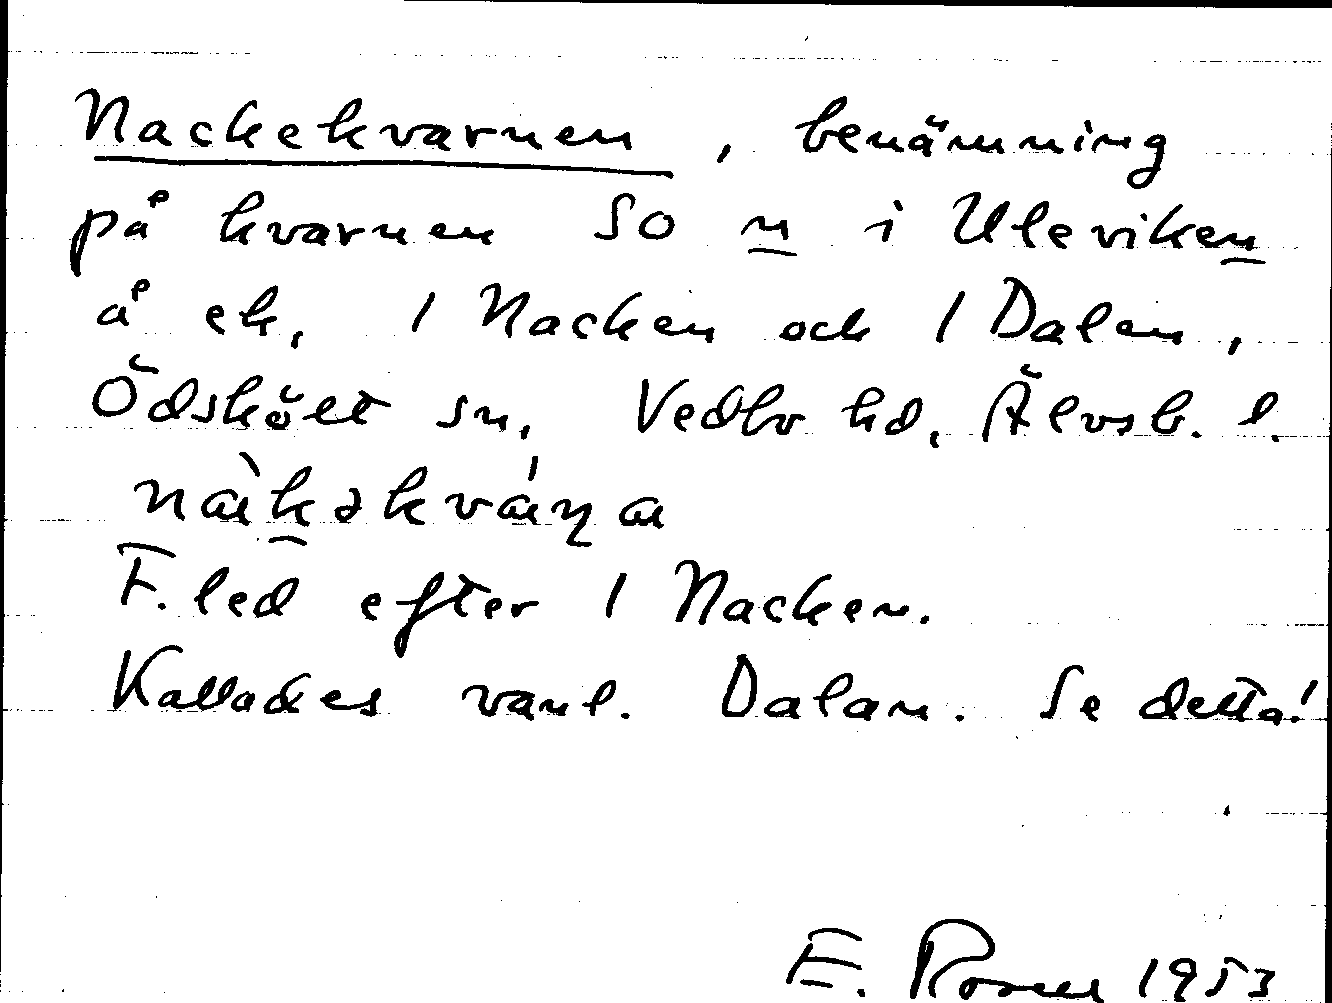 Nackekvarnen, benämning
på kvarnen SO n i Uleviken
å ek. 1 Nacken och 1 Dalen,
Ödskölt sn, Vedbo hd, Älvsb. l.
nàkəkvá̱ɳa
F. led efter 1 Nacken.
Kallades vanl. Dalan. Se detta!
E. 1953